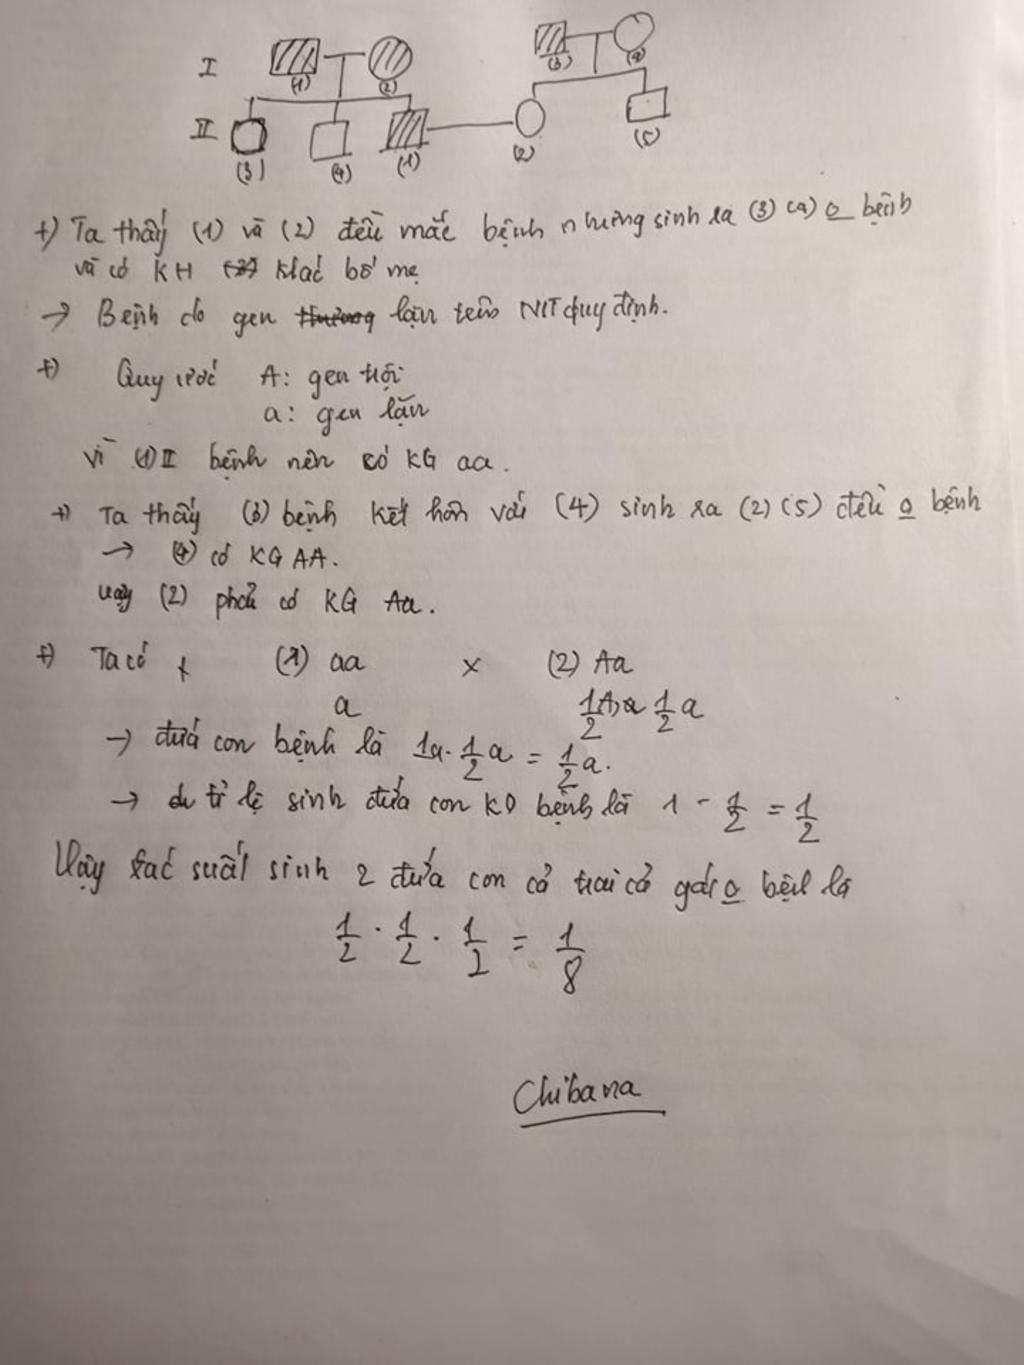 I
(1) (2) (3) (4)
II
(3) (4) (1) (2) (5)
+) Ta thấy (1) và (2) đều mắc bệnh nhưng sinh ra (3) (4) o bệnh
và có KH khác bố mẹ
→ Bệnh do gen lặn trên NST quy định.
+) Quy ước A: gen trội
a: gen lặn
vì (1) II bệnh nên có KG aa.
+) Ta thấy (3) bệnh kết hôn với (4) sinh ra (2) (5) đều o bệnh
→ (4) có KG AA.
vậy (2) phải có KG Aa.
+) Ta có (1) aa x (2) Aa
a 1/2 A, 1/2 a
→ đứa con bệnh là 1a . 1/2 a = 1/2 a.
→ tỉ lệ sinh đứa con KO bệnh là 1 - 1/2 = 1/2
Vậy xác suất sinh 2 đứa con cả trai cả gái o bệnh là
1/2 . 1/2 . 1/2 = 1/8
Chibana